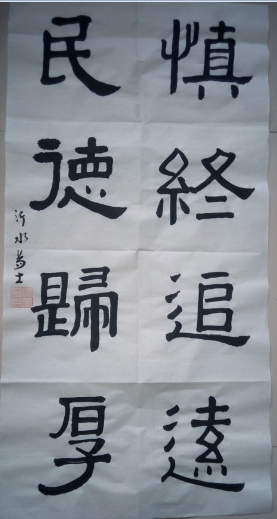 慎終追遠
民德歸厚
沂水